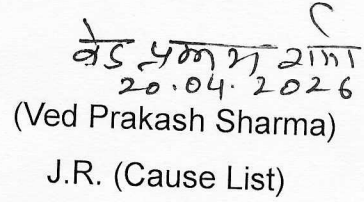 वेद प्रकाश शर्मा
20.04.2026
(Ved Prakash Sharma)
J.R. (Cause List)